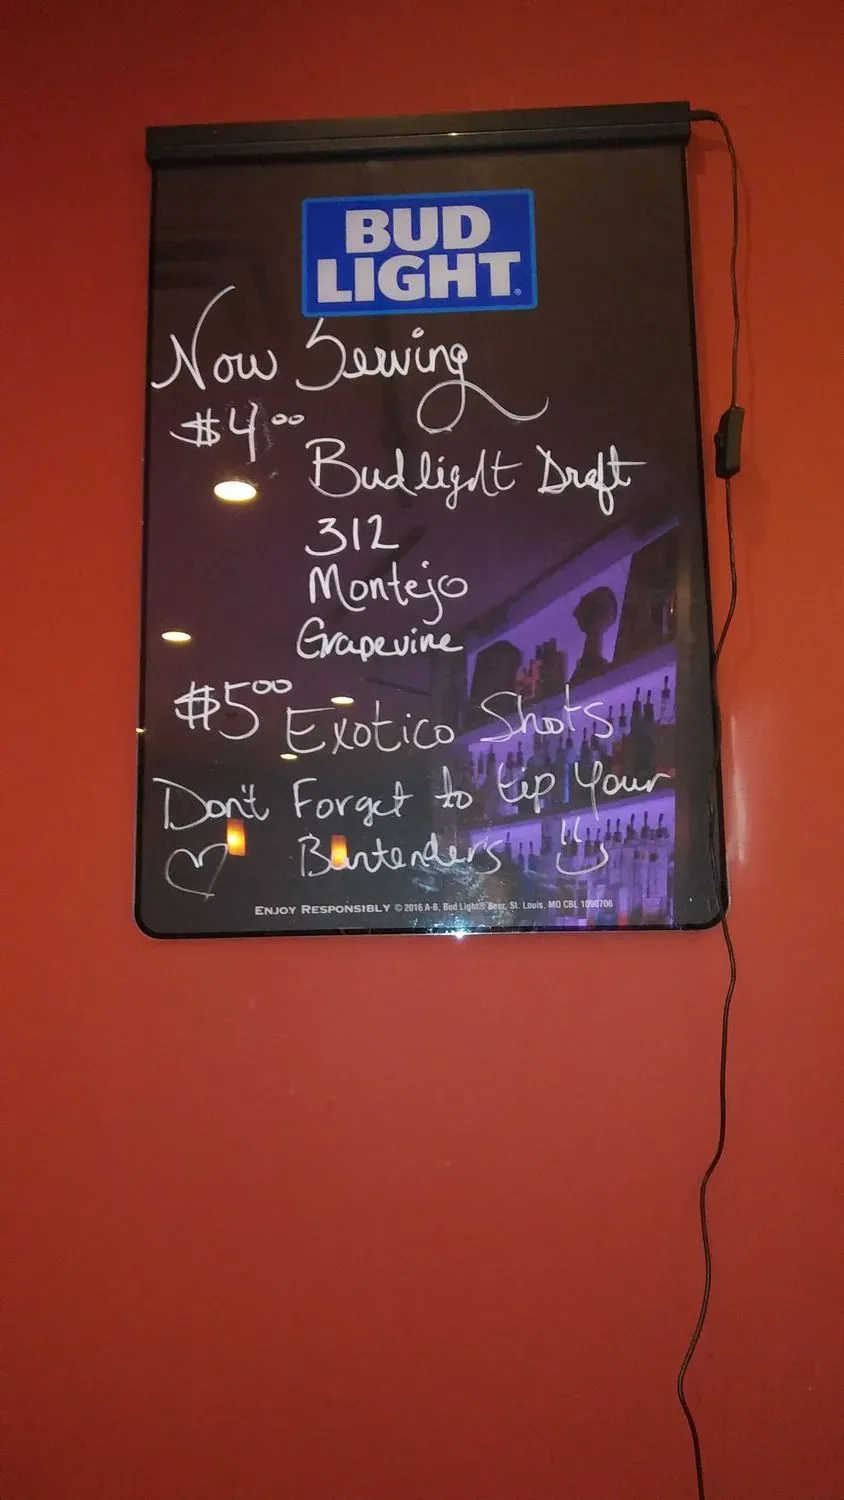 BUD
LIGHT
Now Serving
$4.00
Budlight Draft
312
Montejo
Grapevine
$5.00 Exotico Shots
Don't Forget to tip Your
Bartenders
ENJOY RESPONSIBLY © 2016 A-B, Bud Light® Beer, St. Louis, MO CBL 1090706